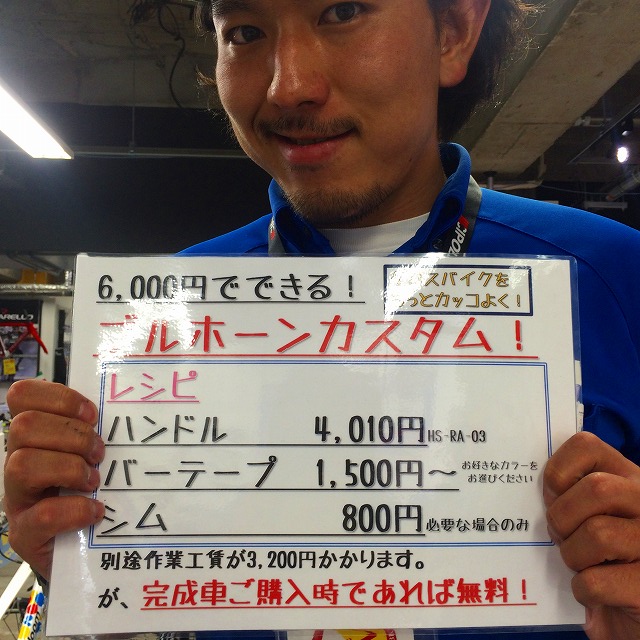 6,000円でできる！
スバイクを
っとカッコよく！
ブルホーンカスタム！
レシピ
ハンドル 4,010円 HS-RA-03
バーテープ 1,500円～ お好きなカラーを
お選びください
シム 800円 必要な場合のみ
別途作業工賃が3,200円かかります。
が、完成車ご購入時であれば無料！